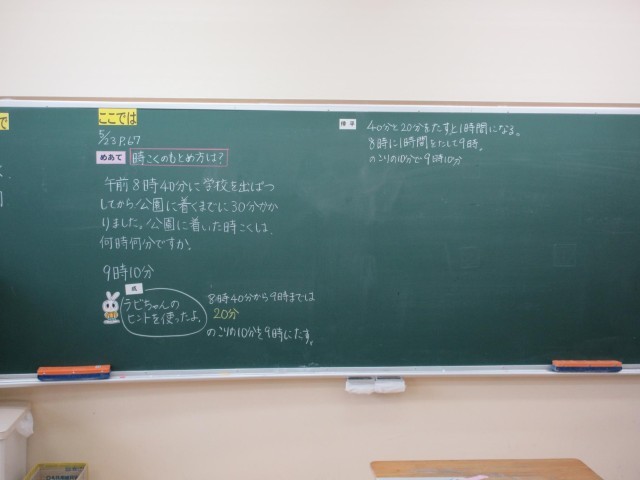 で
ここでは
5/23 P.67
めあて 時こくのもとめ方は?
午前8時40分に学校を出ぱつ
してから公園に着くまでに30分かか
りました。公園に着いた時こくは、
何時何分ですか。
9時10分
ラビちゃんの
ヒントを使ったよ。
8時40分から9時までは
20分
のこりの10分を9時にたす。
40分と20分をたすと1時間になる。
8時に1時間をたして9時。
のこりの10分で9時10分